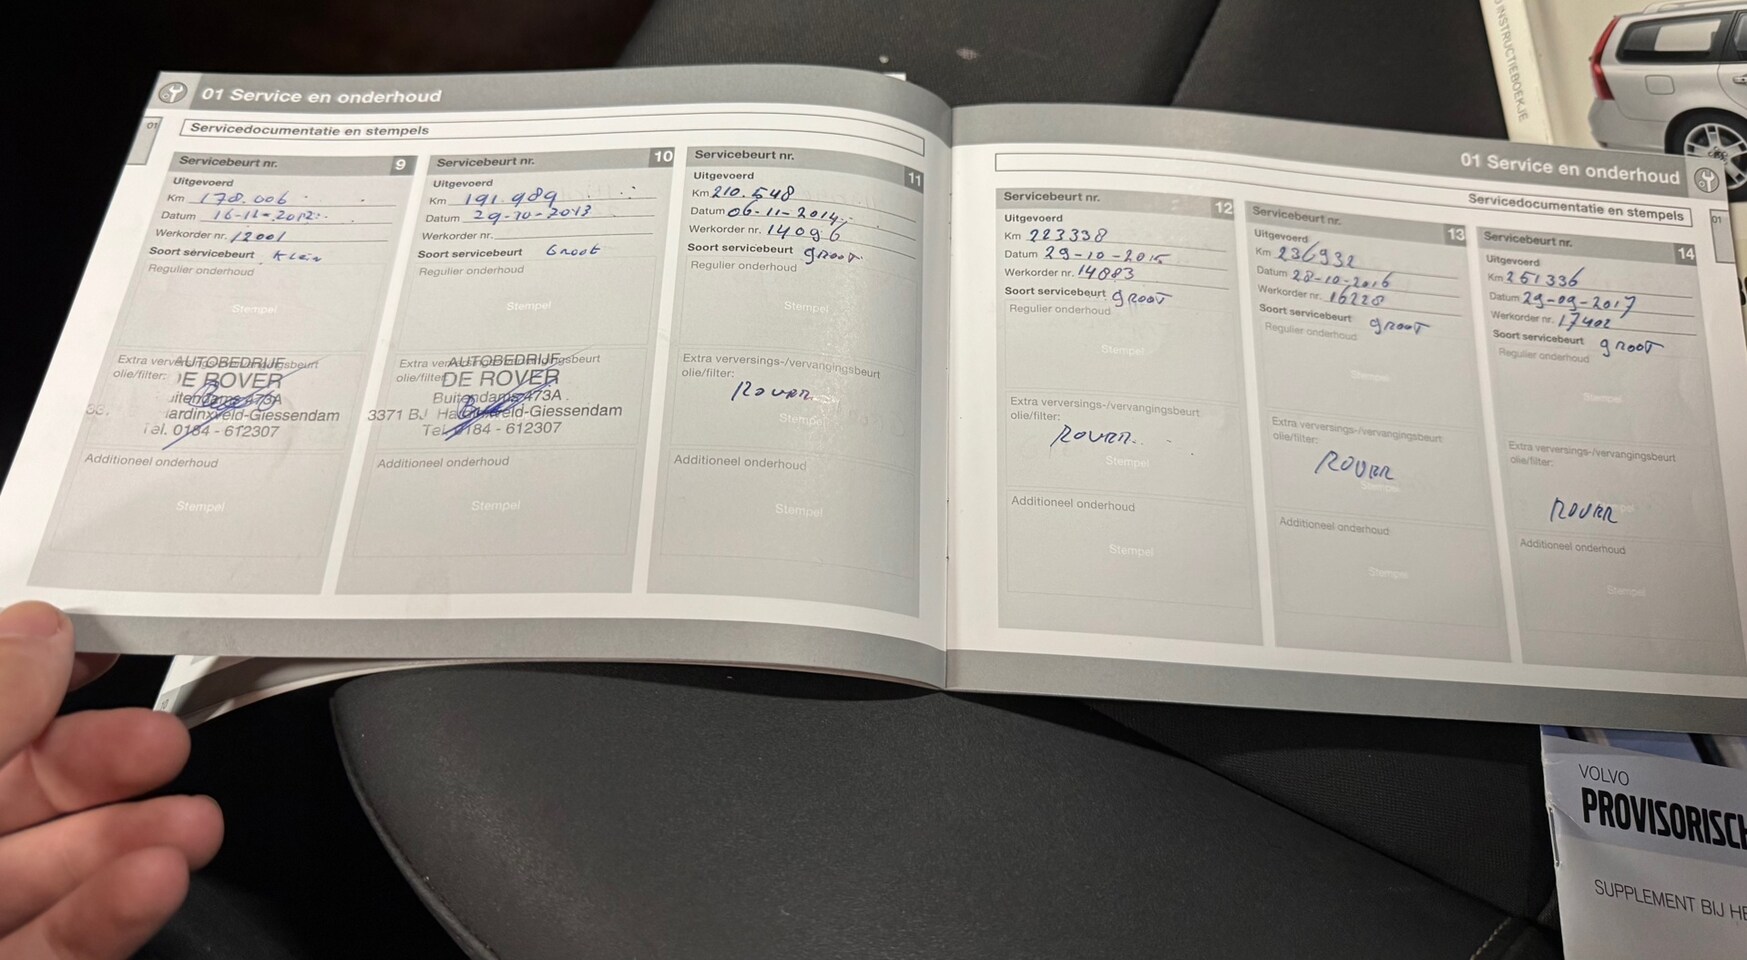 01 Service en onderhoud
01
Servicedocumentatie en stempels
Servicebeurt nr. 9
Uitgevoerd
Km 178.006
Datum 16-11-2012
Werkorder nr. 12001
Soort servicebeurt Klein
Regulier onderhoud
Stempel
Extra verversings-/vervangingsbeurt
olie/filter:
AUTOBEDRIJF
DE ROVER
Buitendams 473A
Hardinxveld-Giessendam
Tel. 0184 - 612307
Additioneel onderhoud
Stempel
Servicebeurt nr. 10
Uitgevoerd
Km 191.989
Datum 29-10-2013
Werkorder nr.
Soort servicebeurt Groot
Regulier onderhoud
Stempel
Extra verversings-/vervangingsbeurt
olie/filter:
AUTOBEDRIJF
DE ROVER
Buitendams 473A
3371 BJ Hardinxveld-Giessendam
Tel. 0184 - 612307
Additioneel onderhoud
Stempel
Servicebeurt nr. 11
Uitgevoerd
Km 210.548
Datum 06-11-2014
Werkorder nr. 14096
Soort servicebeurt groot
Regulier onderhoud
Stempel
Extra verversings-/vervangingsbeurt
olie/filter:
Rover
Stempel
Additioneel onderhoud
Stempel
01 Service en onderhoud
Servicedocumentatie en stempels
01
Servicebeurt nr. 12
Uitgevoerd
Km 223338
Datum 29-10-2015
Werkorder nr. 14883
Soort servicebeurt groot
Regulier onderhoud
Stempel
Extra verversings-/vervangingsbeurt
olie/filter:
Rover
Stempel
Additioneel onderhoud
Stempel
Servicebeurt nr. 13
Uitgevoerd
Km 236932
Datum 28-10-2016
Werkorder nr. 16228
Soort servicebeurt groot
Regulier onderhoud
Stempel
Extra verversings-/vervangingsbeurt
olie/filter:
Rover
Stempel
Additioneel onderhoud
Stempel
Servicebeurt nr. 14
Uitgevoerd
Km 251336
Datum 29-09-2017
Werkorder nr. 17402
Soort servicebeurt groot
Regulier onderhoud
Stempel
Extra verversings-/vervangingsbeurt
olie/filter:
Rover
Additioneel onderhoud
Stempel
INSTRUCTIEBOEKJE
VOLVO
PROVISORISCH
SUPPLEMENT BIJ HE